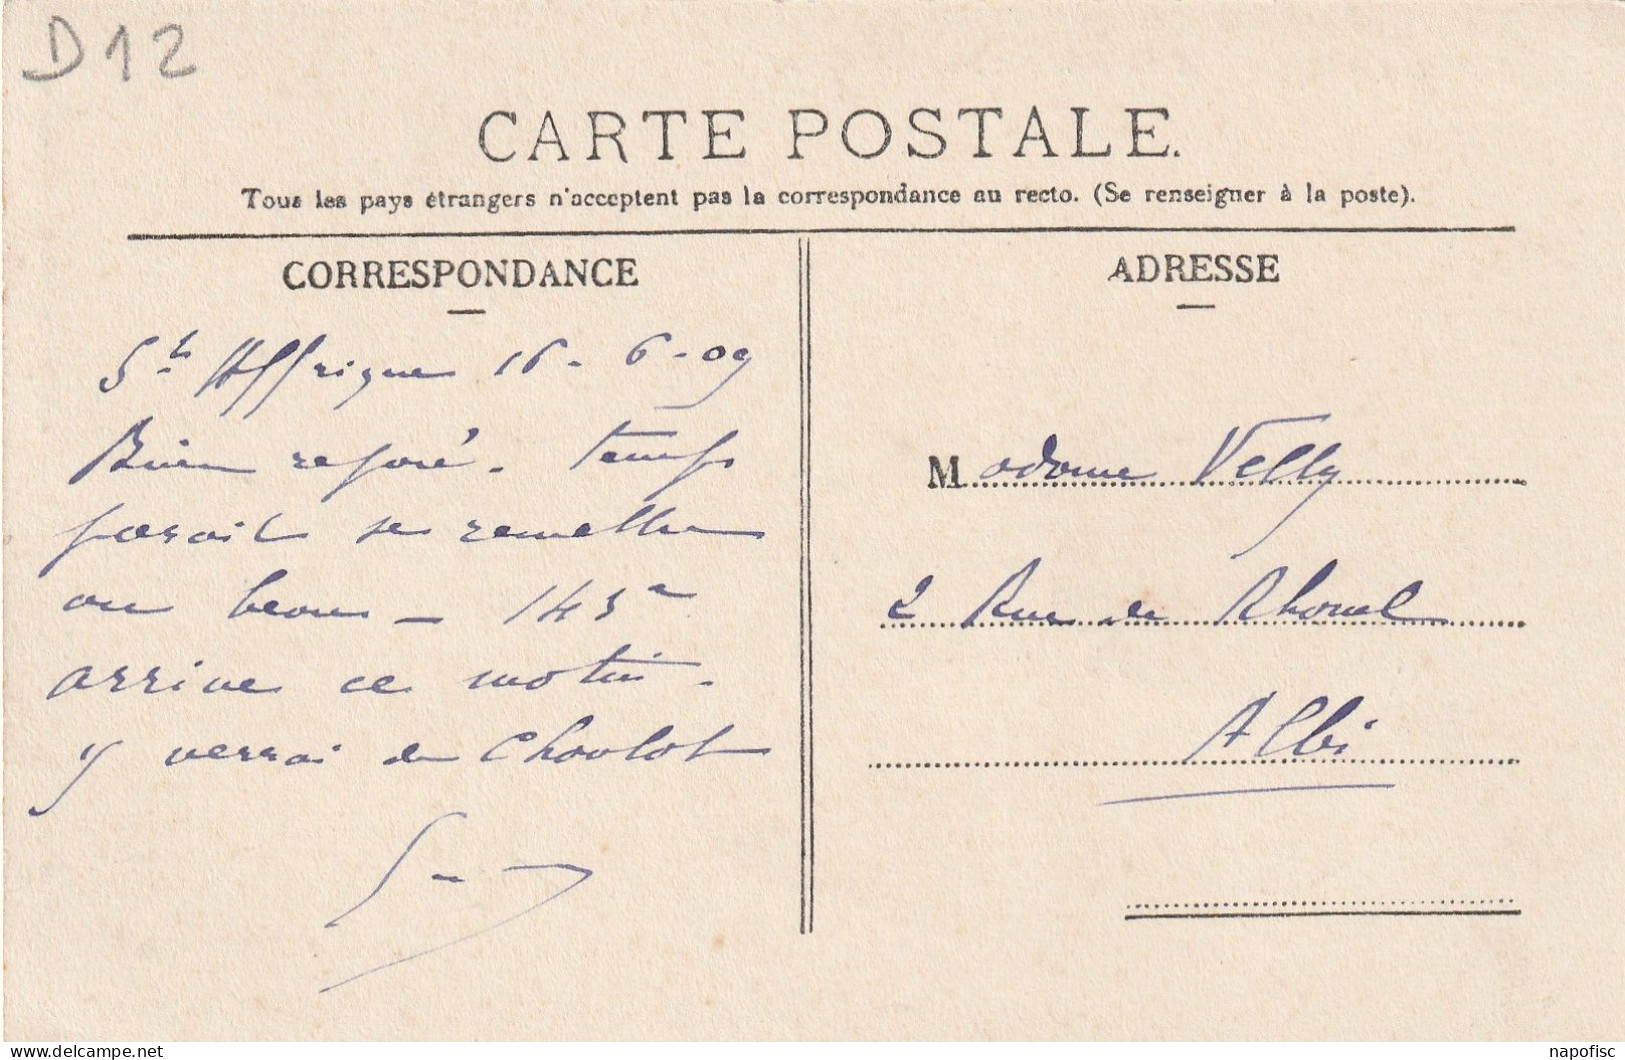 D12
CARTE POSTALE.
Tous les pays étrangers n'acceptent pas la correspondance au recto. (Se renseigner à la poste).
CORRESPONDANCE
St Affrique 16-6-09
Bien reposé. temps
parait se remettre
au beau - 143e
arrive ce matin.
y verrai de Choulot
ADRESSE
Madame Velly
2 Rue de Rhonel
Albi
delcampe.net
napofisc